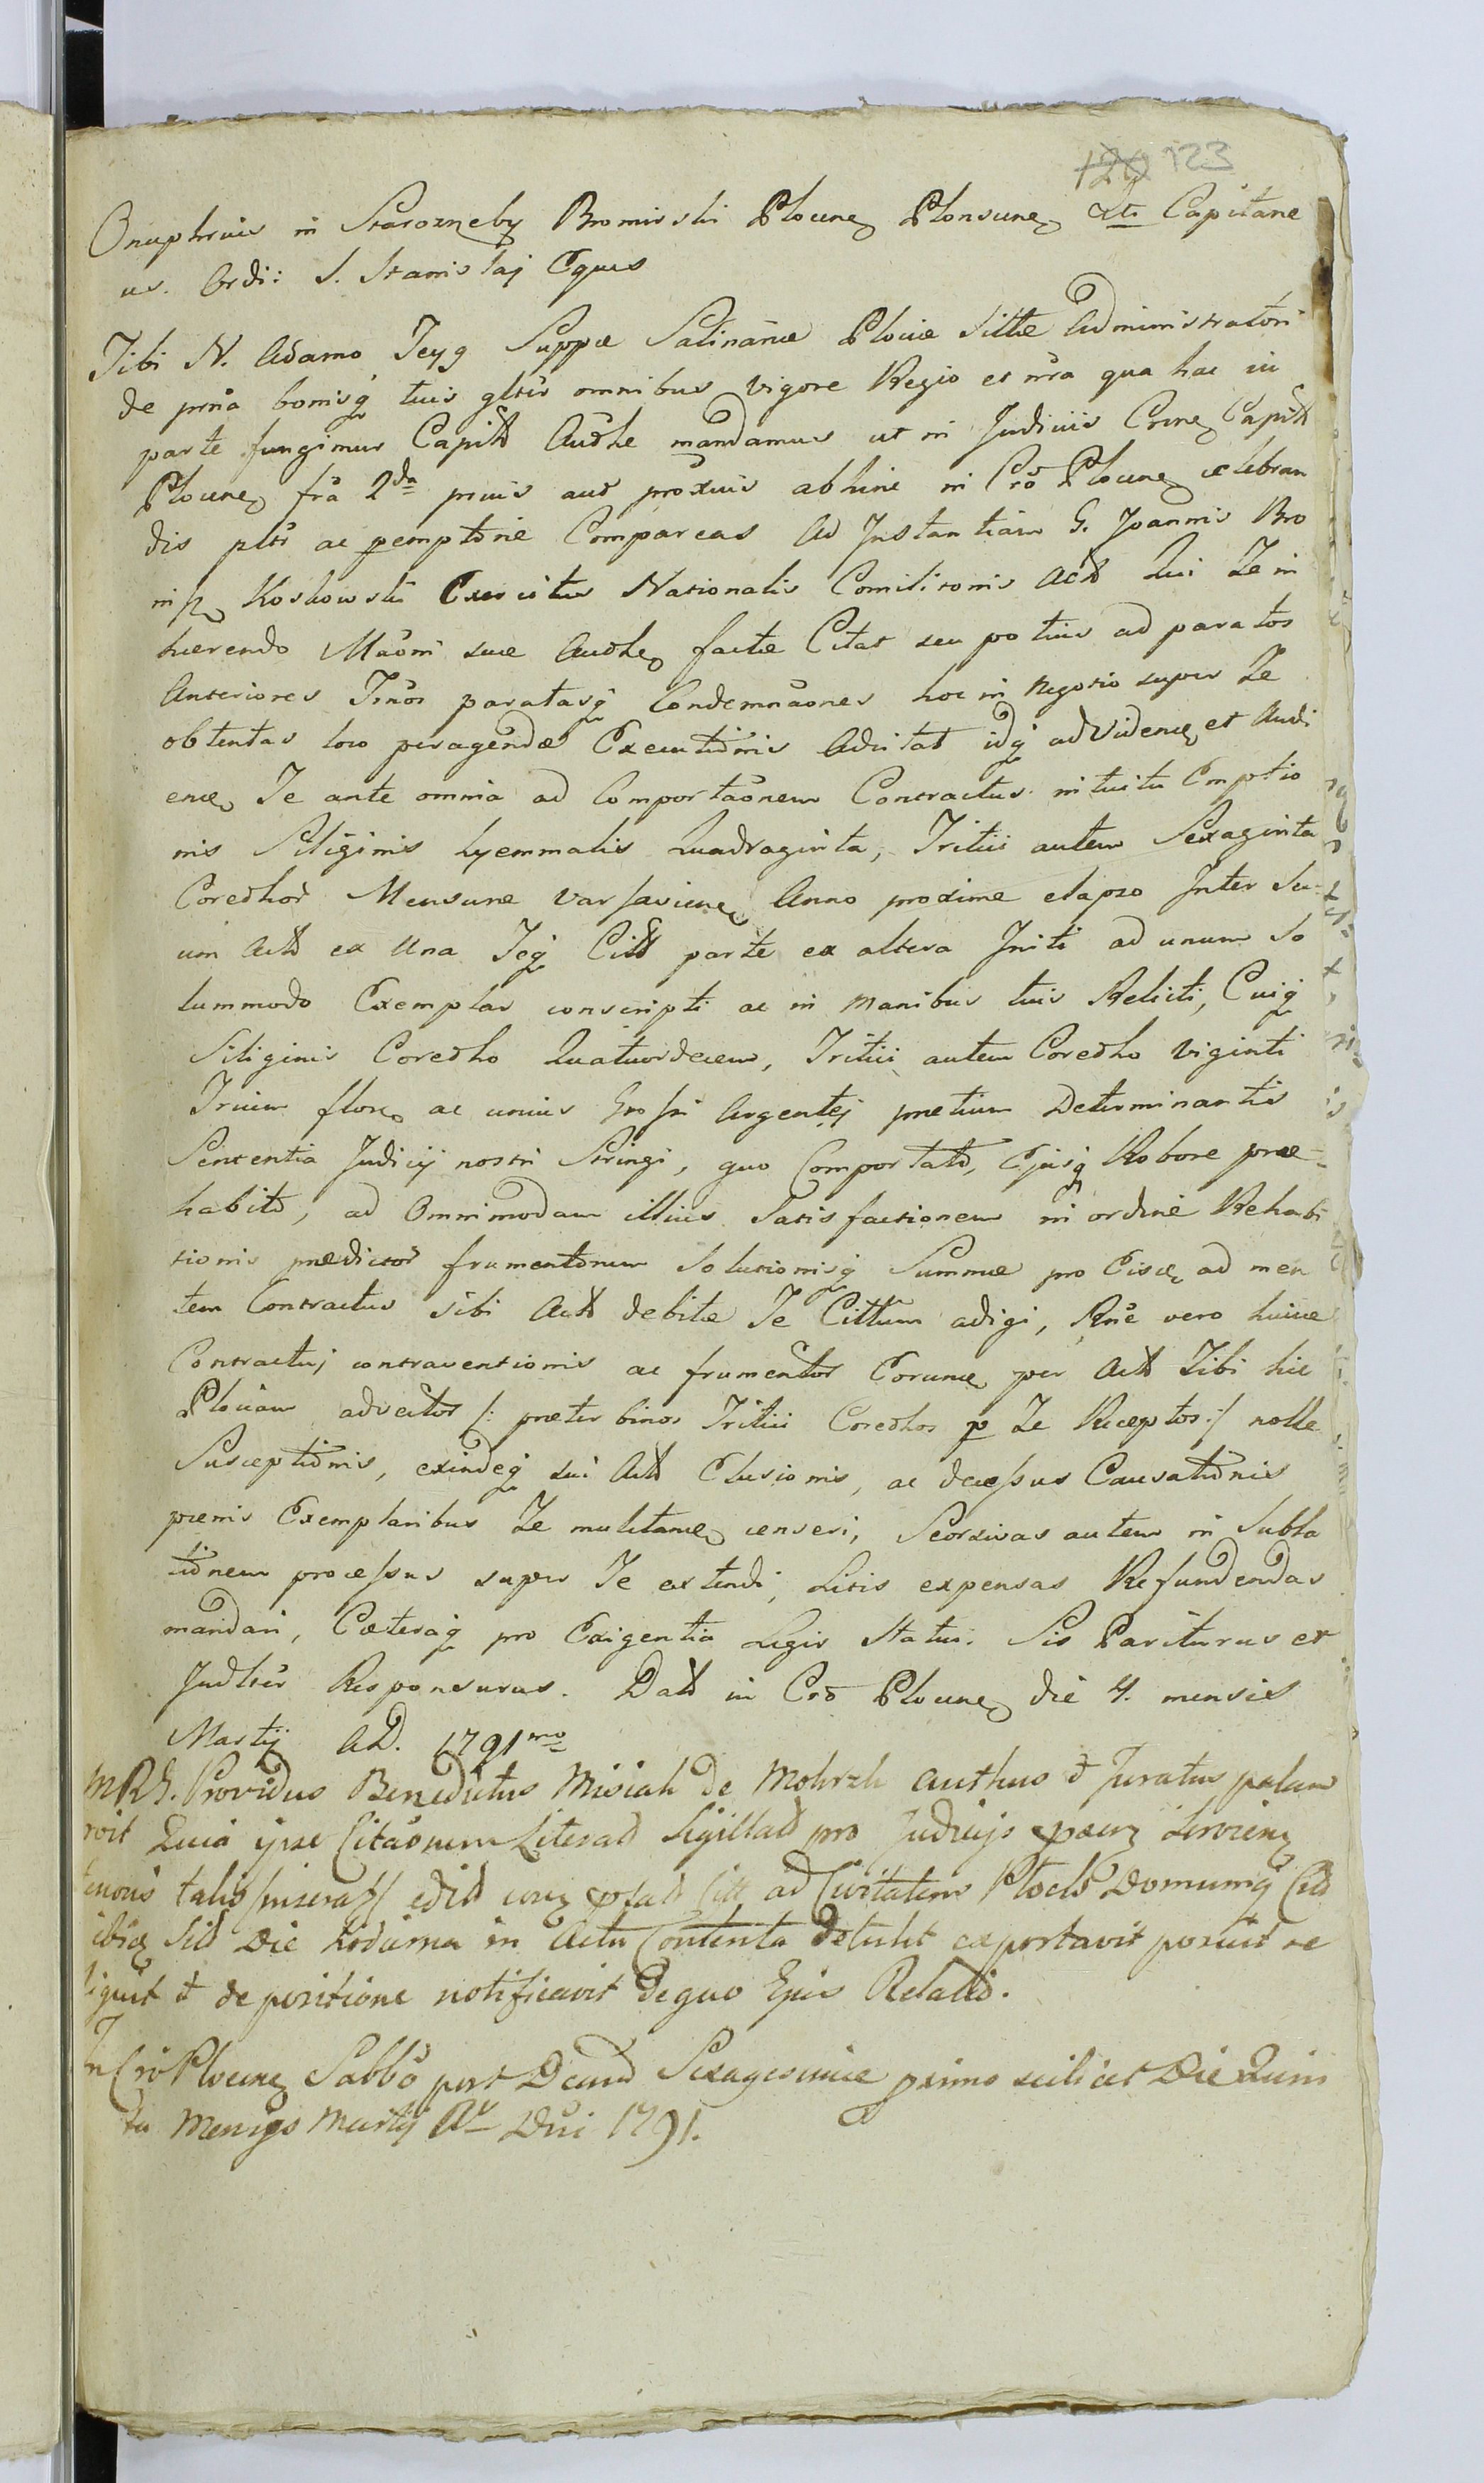 120 123
Onuphrius in Starozreby Bromirski Plocen Plonscen etc Capitane
us. Ordi: S. Stanislaj Eques
Tibi N. Adamo Teyg Suppæ Salinariæ Plociæ Sittæ Administratori
de prnã bonisq tuis gltis omnibus vigore Regio et nrã qua hac in
parte fungimur Capitt Authe mandamus ut in Judiciis Crne Capitt
Plocen frã 2da pmis aut proximis abhinc in Cró Plocen celebran
dis pltr ac pemptorie Compareas Ad Instantiam G. Joannis Bro
nisz Koskowski Exercitus Nationalis Comilitonis Act Qui Te in
hærendo Maóni suæ Authe factæ Citat seu potius ad paratos
Anteriores Tmos paratasq Condemnaónes hoc in Negotio super Te
obtentas loco peragendæ Executiónis Adcitat idq ad videnc et Audi
enc Te ante omnia ad Comportaónem Contractus intuitu Emptio
nis Siliginis hyemmalis Quadraginta, Tritici autem Sexaginta
Coredhor Mensuræ Varsavienc Anno proxime elapso Inter Su
um Act ex Una Teq Citt parte ex altera Initi ad unum So
lummodo Exemplar conscripti ac in Manibus tuis Relicti, Cuiq
Siliginis Coredho Quatuordecem, Tritici autem Coredho Viginti
Trium flor ac unius Grossi Argentej pretium Determinantis
Sententia Judicij nostri Stringi, quo Comportato, Ejusq Robore præ-
habito, ad Omnimodam illius Satisfactionem in ordine Rehabi
tionis prædictor frumentorum Solutionisq Summæ pro Eisdē ad men
tem Contractus sibi Act debitæ Te Cittum adigi, Rne vero hujus
Contractuj contraventionis ac frumentor Eorumd per Act Tibi hic
Plociam advector /: præter binos Tritici Coredhos p Te Receptos :/ nolle
Susceptiónis, exindeq sui Act Elusionis, ac decessus Causatiónis
pœnis Exemplaribus Te mulctand censeri, Seorsivas autem in Subla
tiónem processus super Te extendi, Litis expensas Refundendas
mandari, Cæteraq pro Exigentia Legis Statui. Sis Pariturus et
Judltr Responsurus. Datt in Cró Plocen die 4. mensis
Martij AD. 1791mo
MRG. Providus Benedictus Misiak de Mokrzk Authus et Juratus palam
Quia ipse Citaónem Literat Sigillat pro Judicijs
talis edit ad Civitatem Ploclo Domumq Citt
ibiq Sit Die hodierna in Actu Contenta Detulit exportavit posuit re
liquit et de positione notificavit De quo Ejus Relatio.
In Cró Plocen Sabbo post Dcam Sexagesimæ primo scilicet Die Quin
ta Mensis Martij Ao Dni 1791.